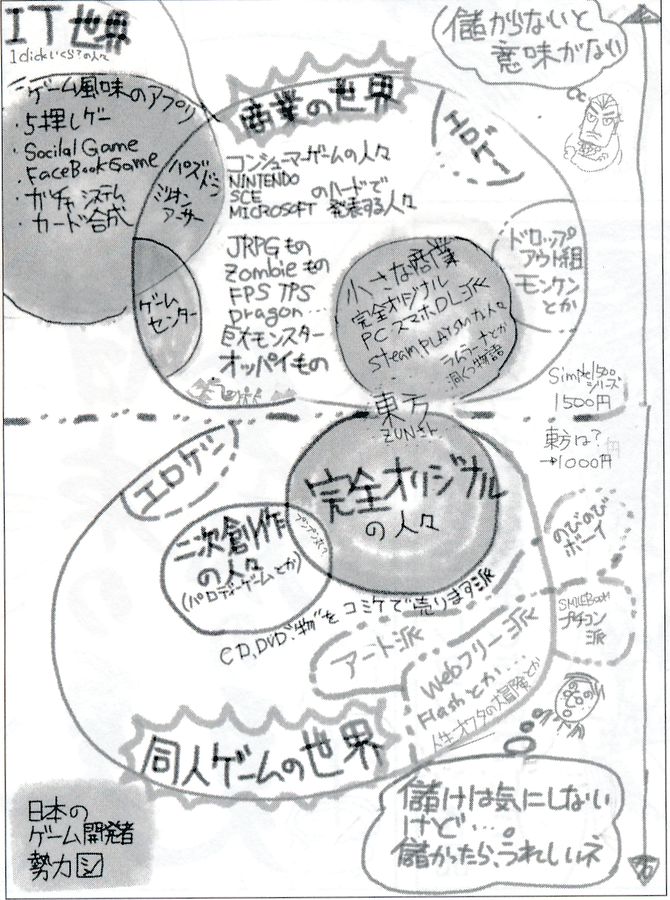 IT世界
1clickいくら?の人々
ゲーム風味のアプリ
・5押しゲー
・Socilal Game
・FaceBookGame
・ガチャシステム
・カード合成
パズドラ
ミリオン
アーサー
ゲーム
センター
商業の世界
コンシューマーゲームの人々
NINTENDO
SCE
MICROSOFT
のハードで
発表する人々
JRPGもの
Zombieもの
FPS TPS
Dragon…
巨大モンスター
オッパイもの
エロゲー
儲からないと
意味がない
ドロップ
アウト組
モンケン
とか
小さな商業
完全オリジナル
PCスマホDL派
steam PLAYISMの人々
ラムラーナとか
洞くつ物語
Simple1500
シリーズ
1500円
東方
ZUNさん
東方は?
→1000円
エロゲー
完全オリジナル
の人々
二次創作
の人々
(パロディーゲームとか)
CD,DVD"物"をコミケで売ります派
のびのび
ボーイ
SMILEBOOM
プチコン
派
アート派
Webフリー派
Flashとか…
人生オワタの大冒険とか
同人ゲームの世界
日本の
ゲーム開発者
勢力図
儲けは気にしない
けど…。
儲かったら、うれしいネ